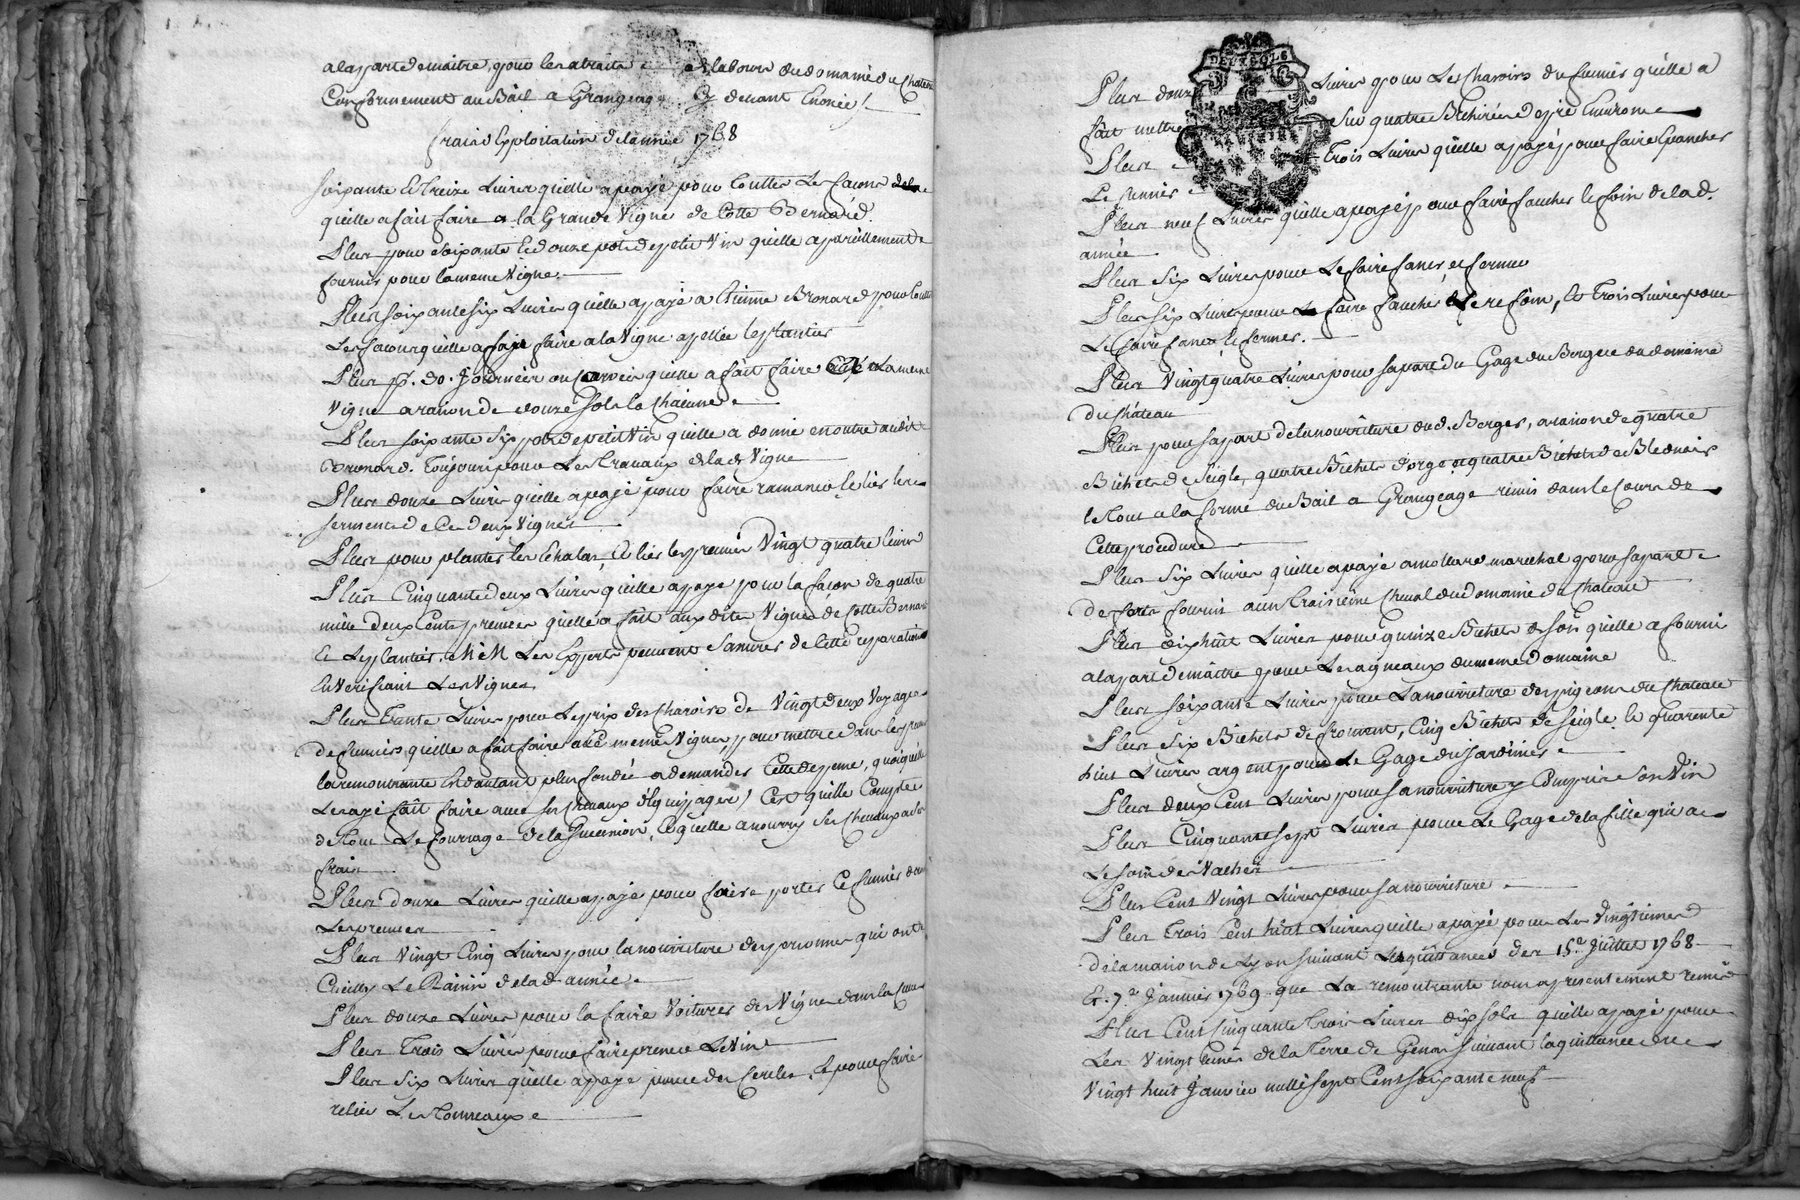 a la part de maitre, pour les attraits et labours du domaine du Chateau
Conformement au Bail a Grangeage Cy devant Enoncé
fraix d'Exploitation de l'année 1768
Soixante Et treize Livres quelle a payé pour touttes Les facons de la
quelle a fait faire a la Grande Vigne de Cotte Bernard.
Plus pour soixante Et douze pots de petit Vin quelle a pareillement
fournis pour la meme Vigne.
Plus soixante six Livres quelle a payé a Etienne Bronard pour touttes
Les facons quelle a fait faire a la Vigne apellée les plantiers
Plus p. 30. Journées ou quelle a fait faire a la meme
Vigne a raison de douze sols la Chacune
Plus soixante six pots de petit Vin quelle a donné en outre audit
Bronard. Toujours pour Les travaux de la de Vigne
Plus douze Livres quelle a payé pour faire ramasser et lier les
serments de Ces deux Vignes
Plus pour planter les Echalas, Et lier les premiers Vingt quatre livres
Plus Cinquante deux Livres quelle a payé pour la façon de quatre
mille deux Cents quelle a fait aux dites Vignes de Cotte Bernard
Et Les plantiers. MM Les Experts peuvent s'assurer de cette reparation
En Verifiant Les Vignes
Plus trente Livres pour Le prix des Charois de Vingt deux Voyages
de fumiers quelle a fait faire aux memes Vignes, pour mettre dans les
la remontrante Est d'autant plus fondée a demander Cette depense, quoiquelle
Les aye fait faire avec ses Chevaux d'Equippages, C'est quelle Compte
de tout Le fourrage de la Guernion, Et quelle a nourry Ses Chevaux a
frais
Plus douze Livres quelle a payé pour faire porter Ce fumier dans
Les
Plus Vingt Cinq Livres pour la nourriture des personnes qui ont
Cueilly Le Raisin de lad. année
Plus douze Livres pour la faire Voiturer des Vignes dans la Cuve
Plus Trois Livres pour faire Le Vin
Plus Six Livres quelle a payé pour des Cercles, Et pour faire
relier Les Tonneaux
DEUX SOLS
Plus douze Livres pour Les Charois du fumier quelle a
fait mettre Sur quatre Bicherées de pré Environ
Plus Trois Livres quelle a payé pour faire Epancher
Ce fumier
Plus neuf Livres quelle a payé pour faire faucher le foin de lad.
année
Plus Six Livres pour Le faire faner et fermer
Plus Six Livres pour Le faire faucher Le refoin, Et Trois Livres pour
Le faire faner, Et fermer.
Plus Vingt quatre Livres pour sa part du Gage du Berger du domaine
du Chateau
Plus pour sa part de la nourriture dud. Berger, a raison de quatre
Bichets de Seigle, quatre Bichets d'orge et quatre Bichets de Bled noir
le tout a la forme du Bail a Grangeage remis dans le Cours de
Cette procedure
Plus Six Livres quelle a payé a mollard marechal pour sa part
de ferts fournis a un troisieme Cheval du domaine du Chateau
Plus dix huit Livres pour quinze Bichets de son quelle a fourni
a la part de maitre pour Les agneaux du meme domaine
Plus Soixante Livres pour La nourriture des pigeons du Chateau
Plus Six Bichets de froment, Cinq Bichets de Seigle, Et quarente
huit Livres argent pour Le Gage du Jardinier
Plus deux Cent Livres pour sa nourriture y Compris Son Vin
Plus Cinquante sept Livres pour Le Gage de la fille qui a
Le soin des Vaches
Plus Cent Vingt Livres pour sa nourriture
Plus Trois Cent huit Livres quelle a payé pour Les Vingtiemes
de la maison de Lyon suivant Les quittances des 15e. Juillet 1768
Et 7e. Janvier 1769. que La remontrante nous a presentement remis
Plus Cent Cinquante trois Livres dix sols quelle a payé pour
Les Vingtiemes de la Terre de Genou suivant la quittance du
Vingt huit Janvier mille sept Cent soixante neuf